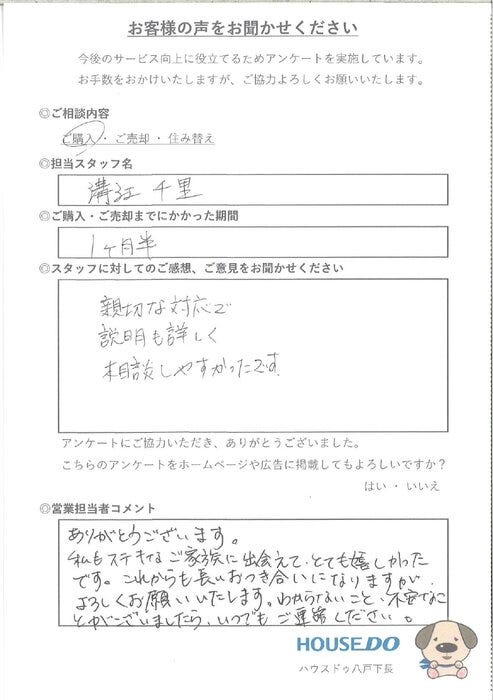 お客様の声をお聞かせください
今後のサービス向上に役立てるためアンケートを実施しています。
お手数をおかけいたしますが、ご協力よろしくお願いいたします。
◎ご相談内容
ご購入・ご売却・住み替え
◎担当スタッフ名
溝江 千里
◎ご購入・ご売却までにかかった期間
1ヶ月半
◎スタッフに対してのご感想、ご意見をお聞かせください
親切な対応で
説明も詳しく
相談しやすかったです
アンケートにご協力いただき、ありがとうございました。
こちらのアンケートをホームページや広告に掲載してもよろしいですか?
はい・いいえ
◎営業担当者コメント
ありがとうございます。
私もステキなご家族に出会えて、とても嬉しかった
です。これからも長いおつき合いになりますが、
よろしくお願いいたします。わからないこと、不安なこ
とがございましたら、いつでもご連絡ください。
HOUSEDO
ハウスドゥ八戸下長